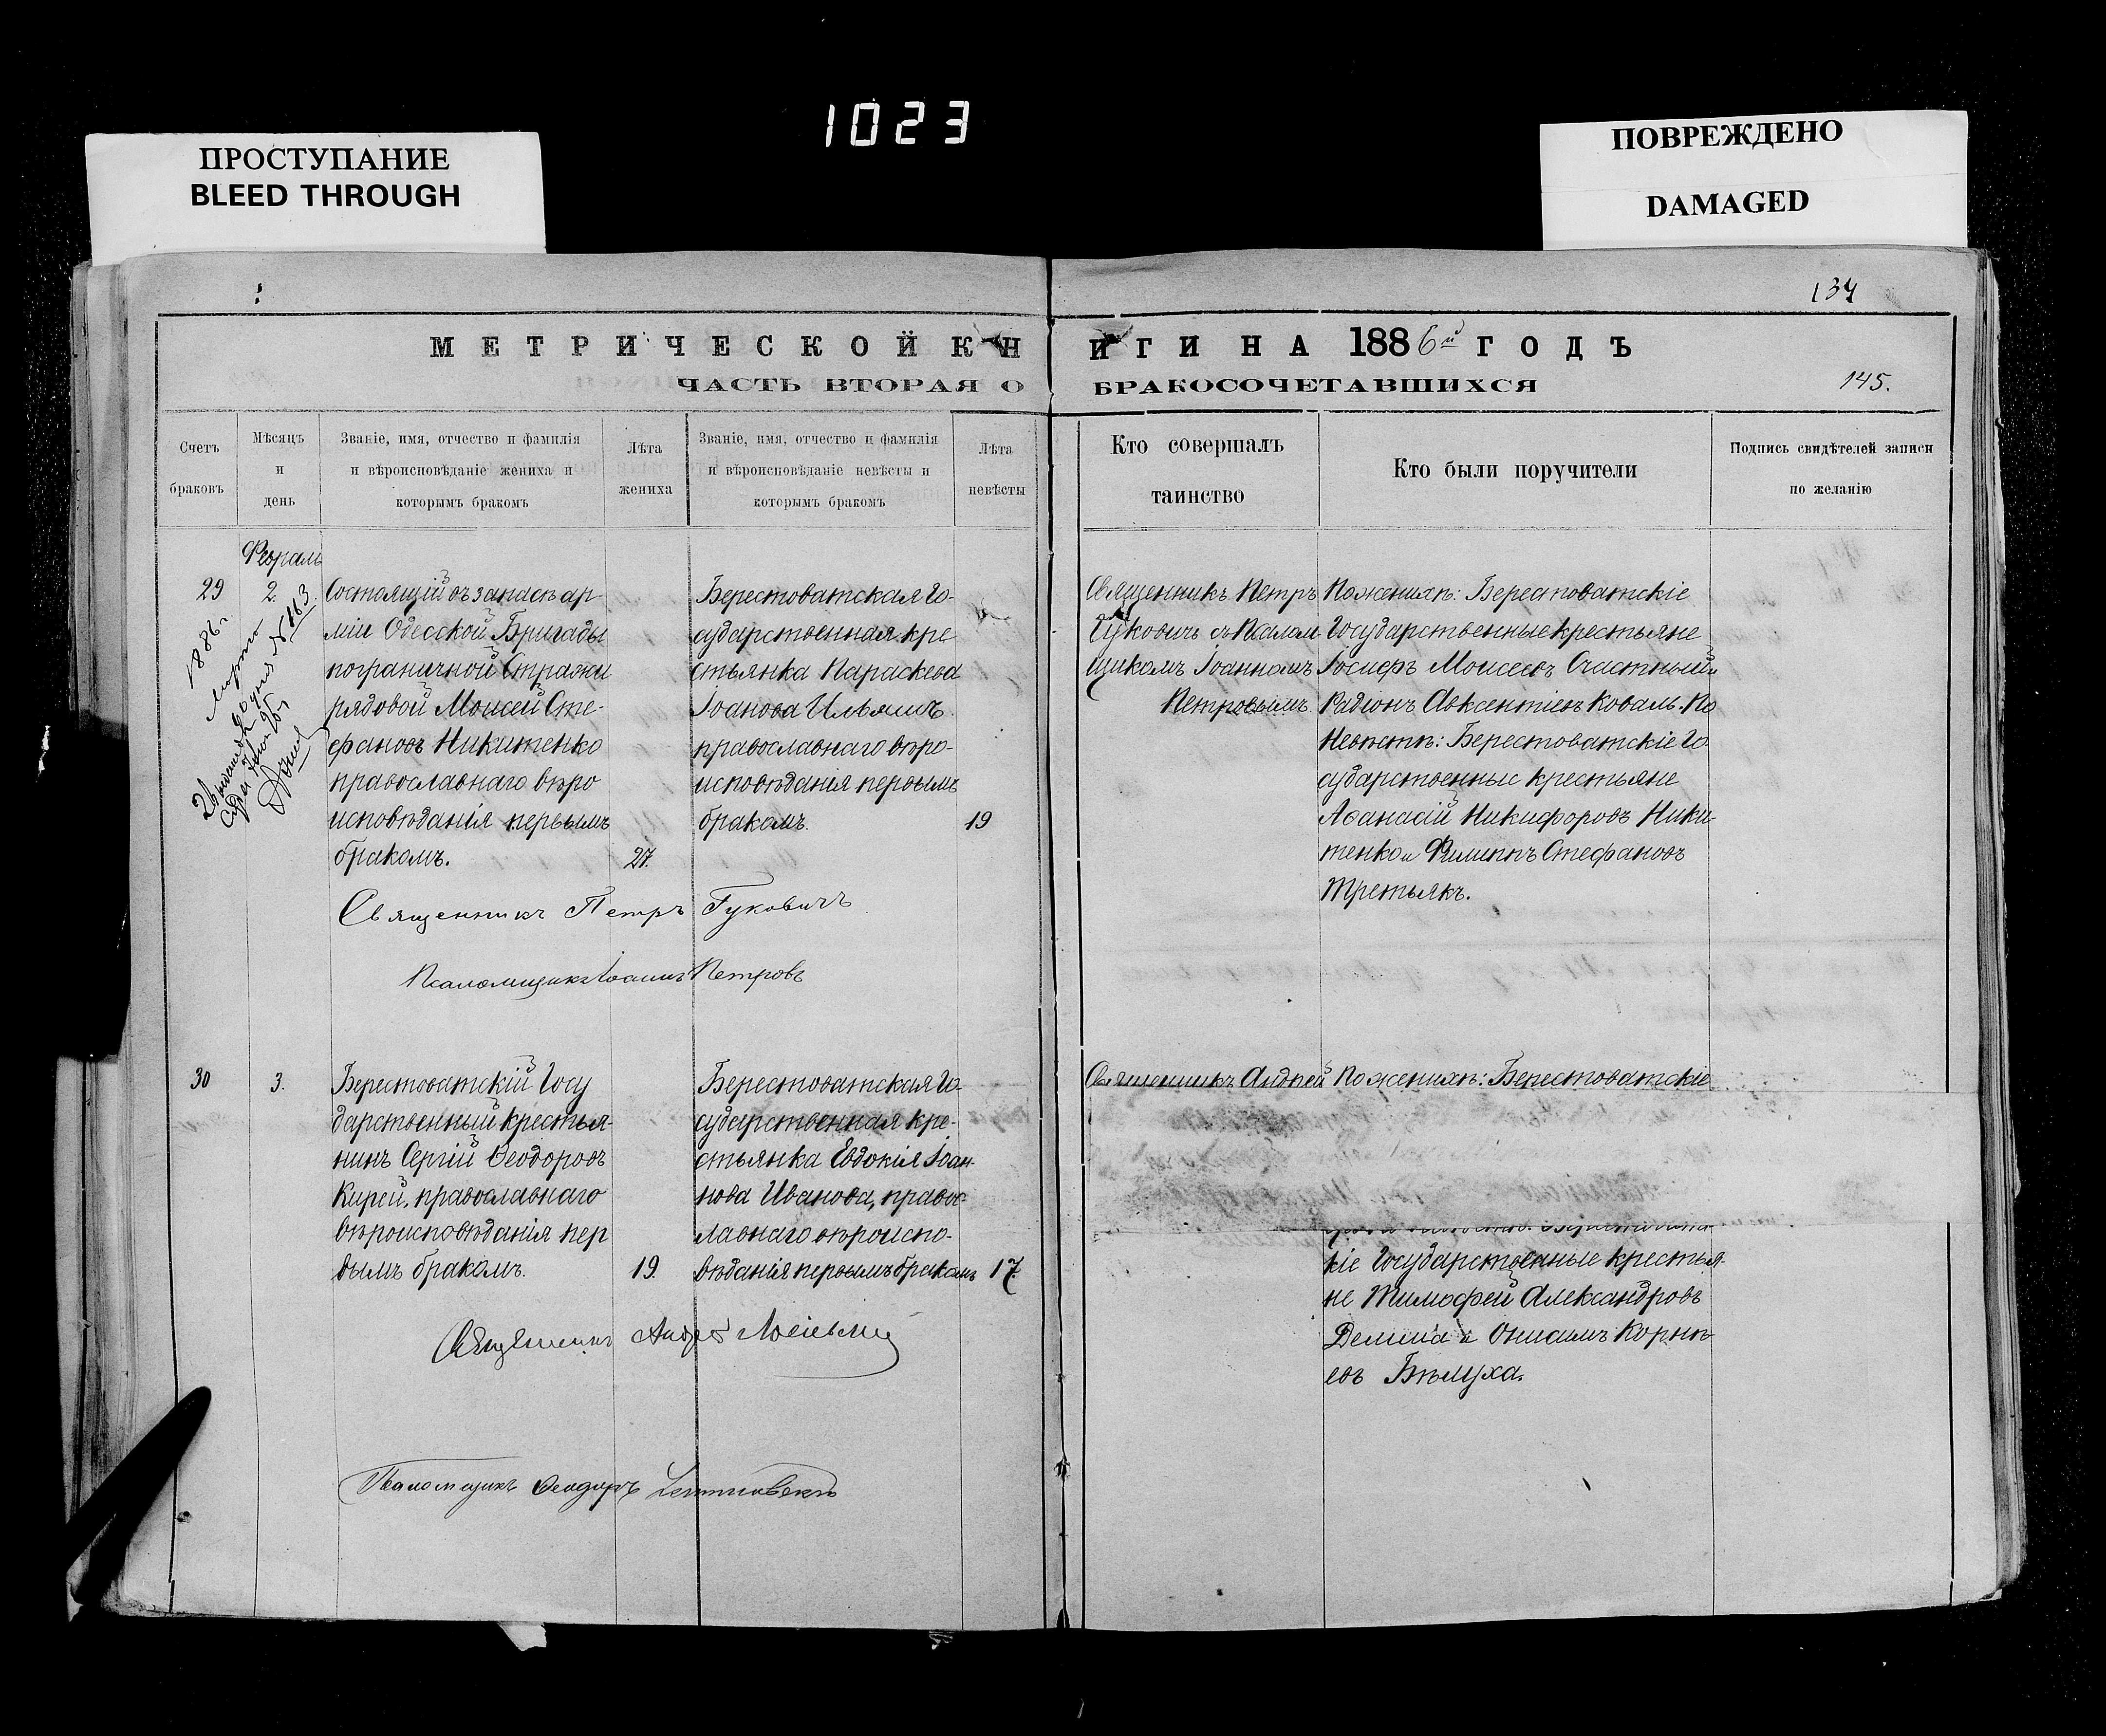 1023
ПРОСТУПАНИЕ
BLEED THROUGH
ПОВРЕЖДЕНО
DAMAGED
134
МЕТРИЧЕСКОЙ КНИГИ НА 1886й ГОДЪ
ЧАСТЬ ВТОРАЯ О БРАКОСОЧЕТАВШИХСЯ
145.
Счетъ
браковъ
Мѣсяцъ
и
день
Званіе, имя, отчество и фамилія
и вѣроисповѣданіе жениха и
которымъ бракомъ
Лѣта
жениха
Званіе, имя, отчество и фамилія
и вѣроисповѣданіе невѣсты и
которымъ бракомъ
Лѣта
невѣсты
Кто совершалъ
таинство
Кто были поручители
Подпись свидѣтелей записи
по желанію
Февраль
29
2.
1886 г.
марта
№ 1163
Состоящій въ запасѣ ар-
міи Одесской Бригады
пограничной Стражи
рядовой Моисей Сте-
фановъ Никитенко
православнаго вѣро
исповѣданія первымъ
бракомъ.
27.
Берестоватская Го-
сударственная кре
стьянка Параскева
Іоанова Ильяшъ
православнаго вѣро-
исповѣданія первымъ
бракомъ.
19
Священникъ Петръ
Гуковичъ съ Псалом
щикомъ Іоанномъ
Петровымъ
По женихѣ: Берестоватскіе
Государственные крестьяне
Іосифъ Моисеевъ Счастный и
Радіонъ Авксентіевъ Коваль. По
Невѣстѣ: Берестоватскіе Го
сударственные крестьяне
Аѳанасій Никифоровъ Ники-
тенко и Филиппъ Стефановъ
Третьякъ.
Священникъ Петръ Гуковичъ
Псаломщикъ Іоаннъ Петровъ
30
3.
Берестоватскій Госу
дарственный крестья-
нинъ Сергій Ѳеодоровъ
Кирей, православнаго
вѣроисповѣданія пер
вымъ бракомъ.
19.
Берестоватская Го-
сударственная кре-
стьянка Евдокія Іоан-
нова Иванова, правос-
лавнаго вѣроиспо-
вѣданія первымъ бракомъ
17.
Священникъ Андрей
По женихѣ: Берестоватскіе
кіе Государственные крестья-
не Тимофей Александровъ
и Онисимъ Корнѣ-
евъ Бѣлуха.
Священникъ Андрей
Псаломщикъ Ѳеодоръ